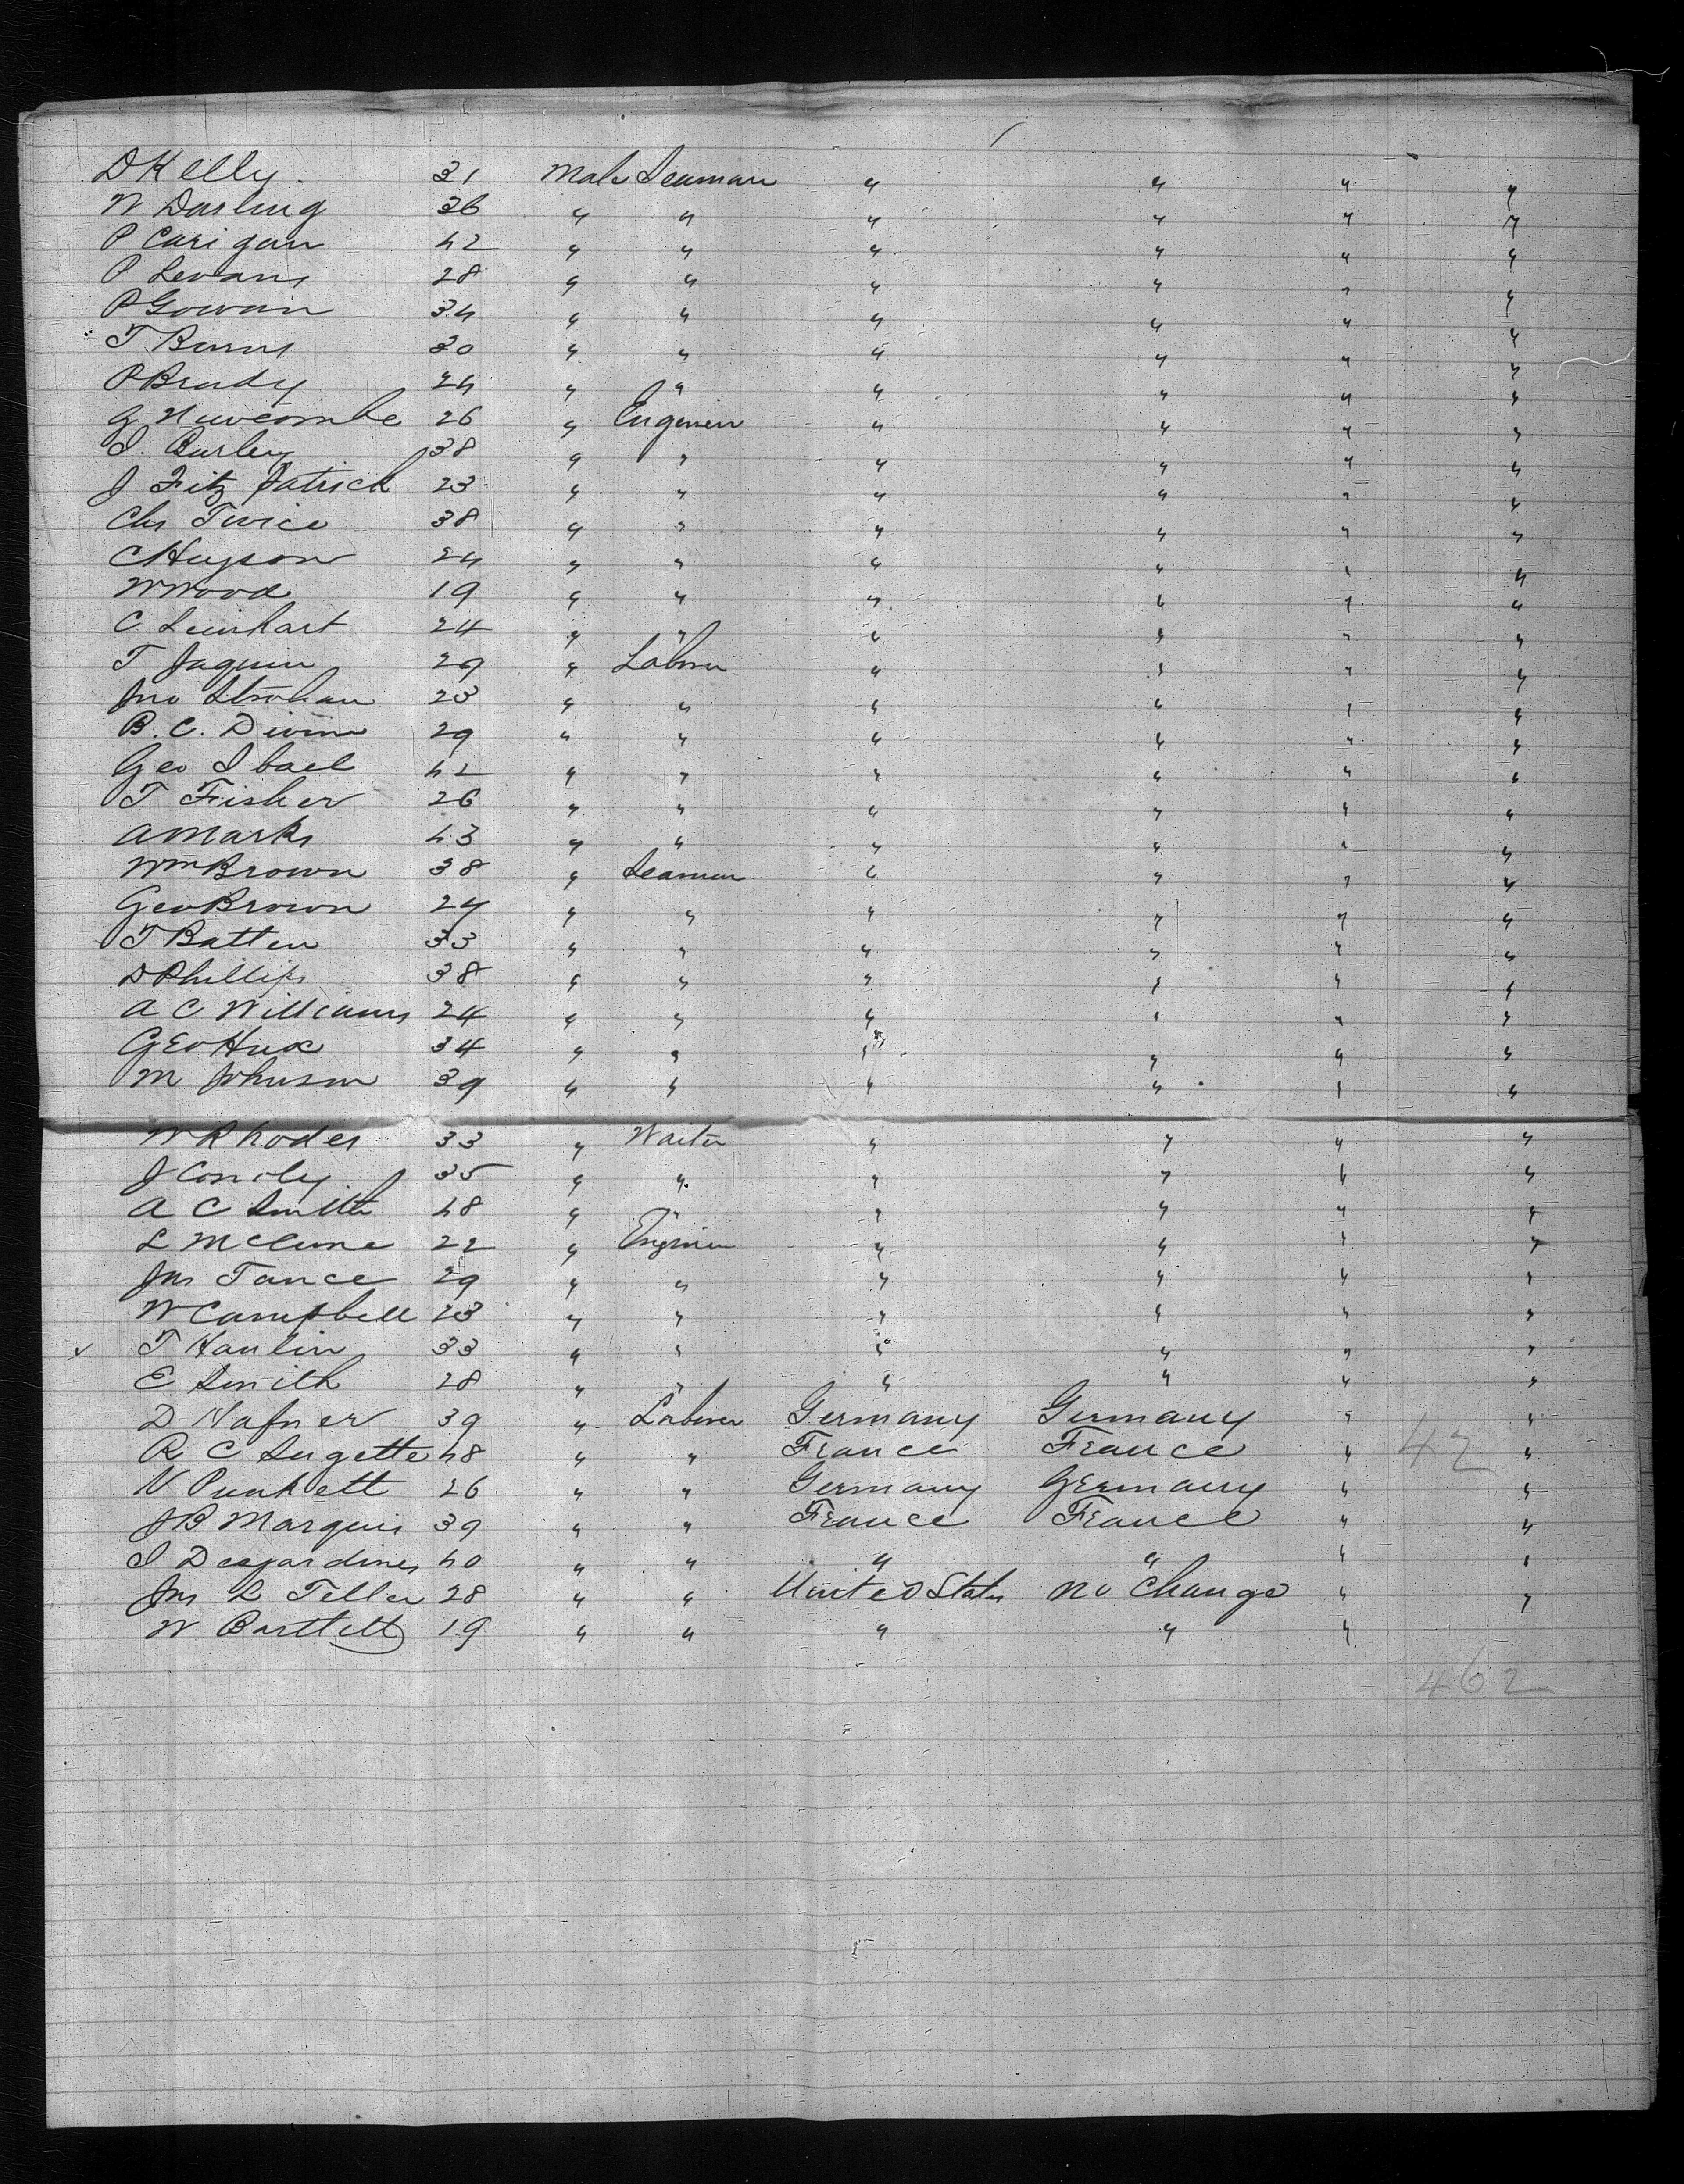 D Kelly. 31 Male Seaman " " " "
W Darling 36 " " " " " "
P Carigan 42 " " " " " "
P Levans 28 " " " " " "
P Gowan 34 " " " " " "
T Burns 30 " " " " " "
P Brady 24 " " " " " "
G Newcombe 26 " Engineer " " " "
J. Burley 38 " " " " " "
J Fitz Patrick 23 " " " " " "
Chs Twice 38 " " " " " "
C Heyson 24 " " " " " "
W Wood 19 " " " " " "
C. Leinhart 24 " " " " " "
T Jaquin 29 " Laborer " " " "
Jno Strohan 23 " " " " " "
B. C. Divine 29 " " " " " "
Geo Ibael 42 " " " " " "
T Fisher 26 " " " " " "
A Marks 43 " " " " " "
Wm Brown 38 " Seaman " " " "
Geo Brown 24 " " " " " "
T Batten 33 " " " " " "
D Phillips 38 " " " " " "
A C Williams 24 " " " " " "
Geo Hux 34 " " " " " "
M Johnson 39 " " " " " "
W Rhodes 33 " Waiter " " " "
J Conoly 35 " " " " " "
A C Smith 48 " " " " " "
L McClune 22 " Engineer " " " "
Jas Tance 29 " " " " " "
W Campbell 23 " " " " " "
T Hanlin 33 " " " " " "
E Smith 28 " " " " " "
D Hafner 39 " Laborer Germany Germany " "
R C Sugette 48 " " France France " 42 "
N Punkett 26 " " Germany Germany " "
J B Marquis 39 " " France France " "
J Desjardines 40 " " " " " "
Jas L Teller 28 " " United States no Change " "
W Bartlett 19 " " " " "
462